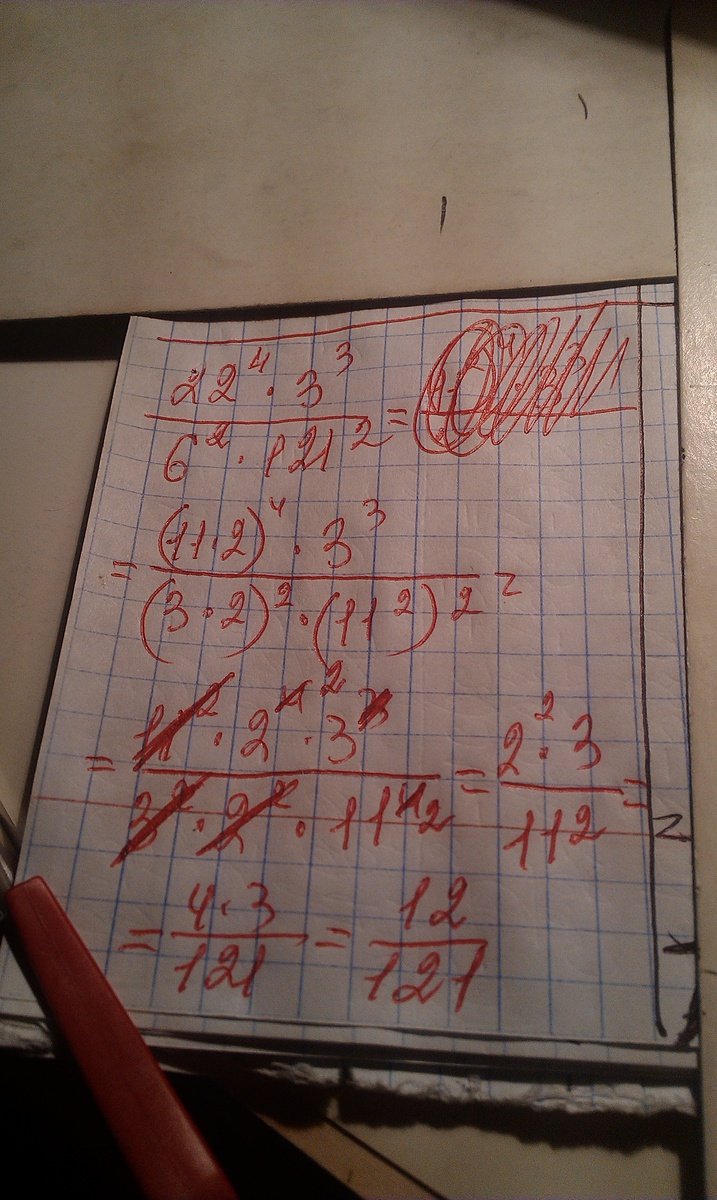 22^4 · 3^3 / 6^2 · 121^2 =
= (11·2)^4 · 3^3 / (3·2)^2 · (11^2)^2 =
= 11^2 · 2^4 2 · 3^3 / 3^2 · 2^2 · 11^4 2 = 2^2 · 3 / 11^2 =
= 4·3 / 121 = 12 / 121